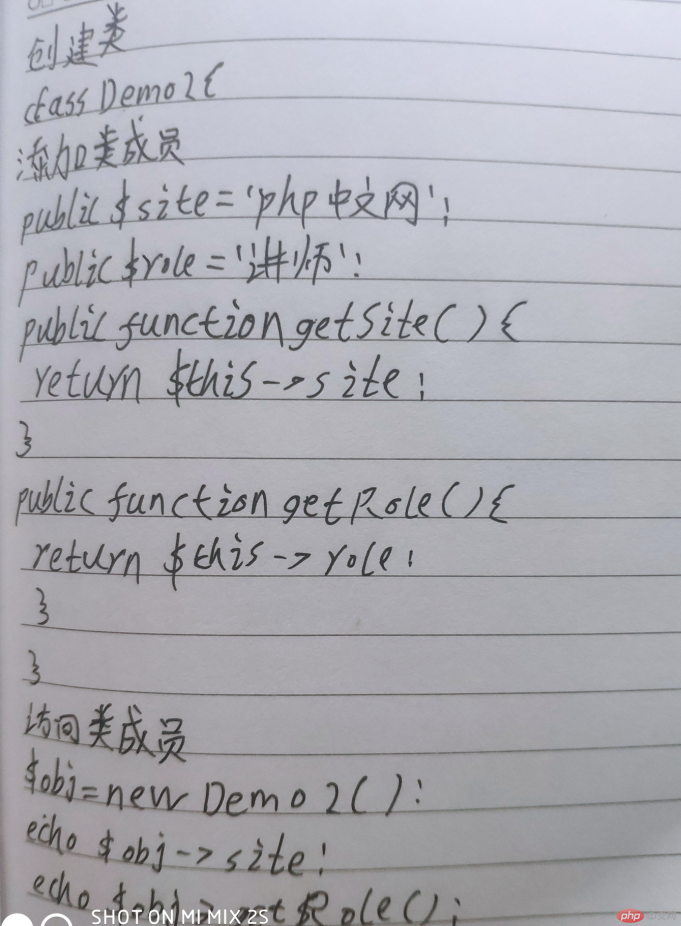 创建类
class Demo2{
添加类成员
public $site='php中文网';
public $role='讲师';
public function getSite(){
return $this->site;
}
public function getRole(){
return $this->role;
}
}
访问类成员
$obj=new Demo2();
echo $obj->site;
echo $obj->getRole();
SHOT ON MI MIX 2S
php